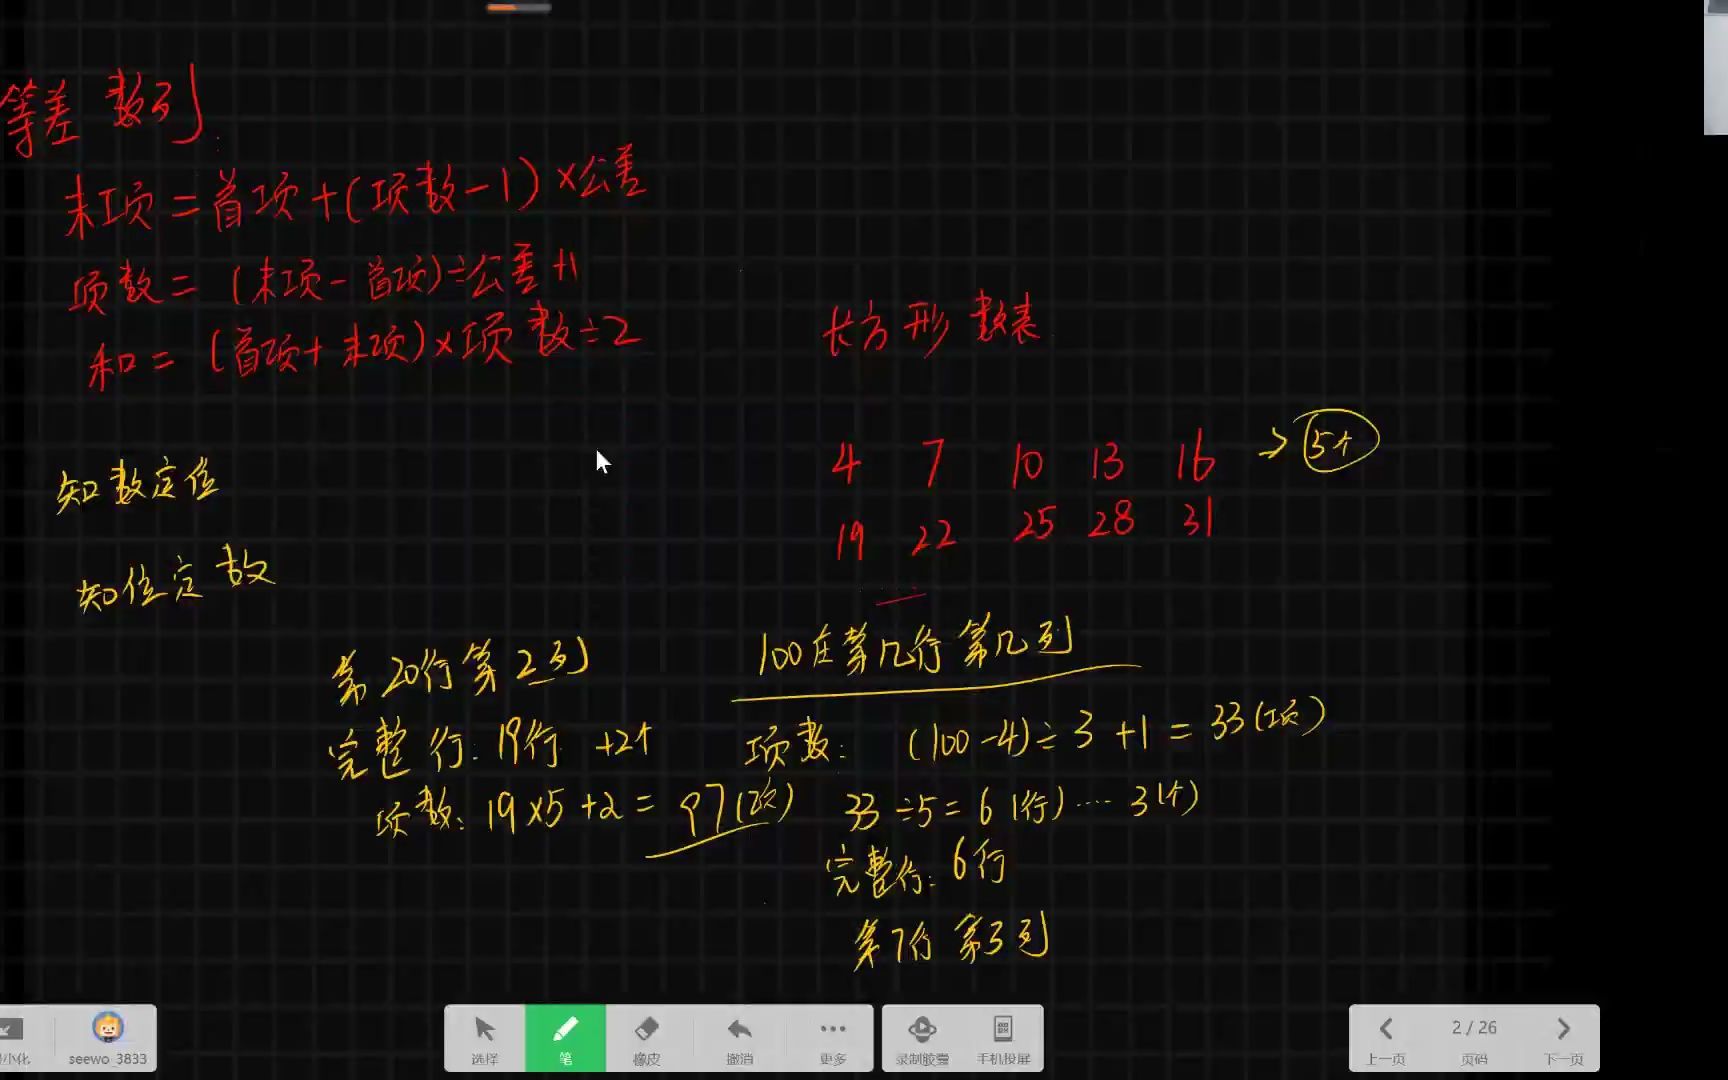 等差数列
末项=首项+(项数-1)×公差
项数=(末项-首项)÷公差+1
和=(首项+末项)×项数÷2
长方形数表
4 7 10 13 16 → 5个
19 22 25 28 31
知数定位
知位定数
第20行第2列
完整行:19行 +2个
项数:19×5+2=97(项)
100在第几行第几列
项数: (100-4)÷3+1=33(项)
33÷5=6(行)····3(个)
完整行:6行
第7行 第3列
seewo_3833
选择
笔
橡皮
撤消
更多
录制胶囊
手机投屏
上一页
2 / 26
页码
下一页